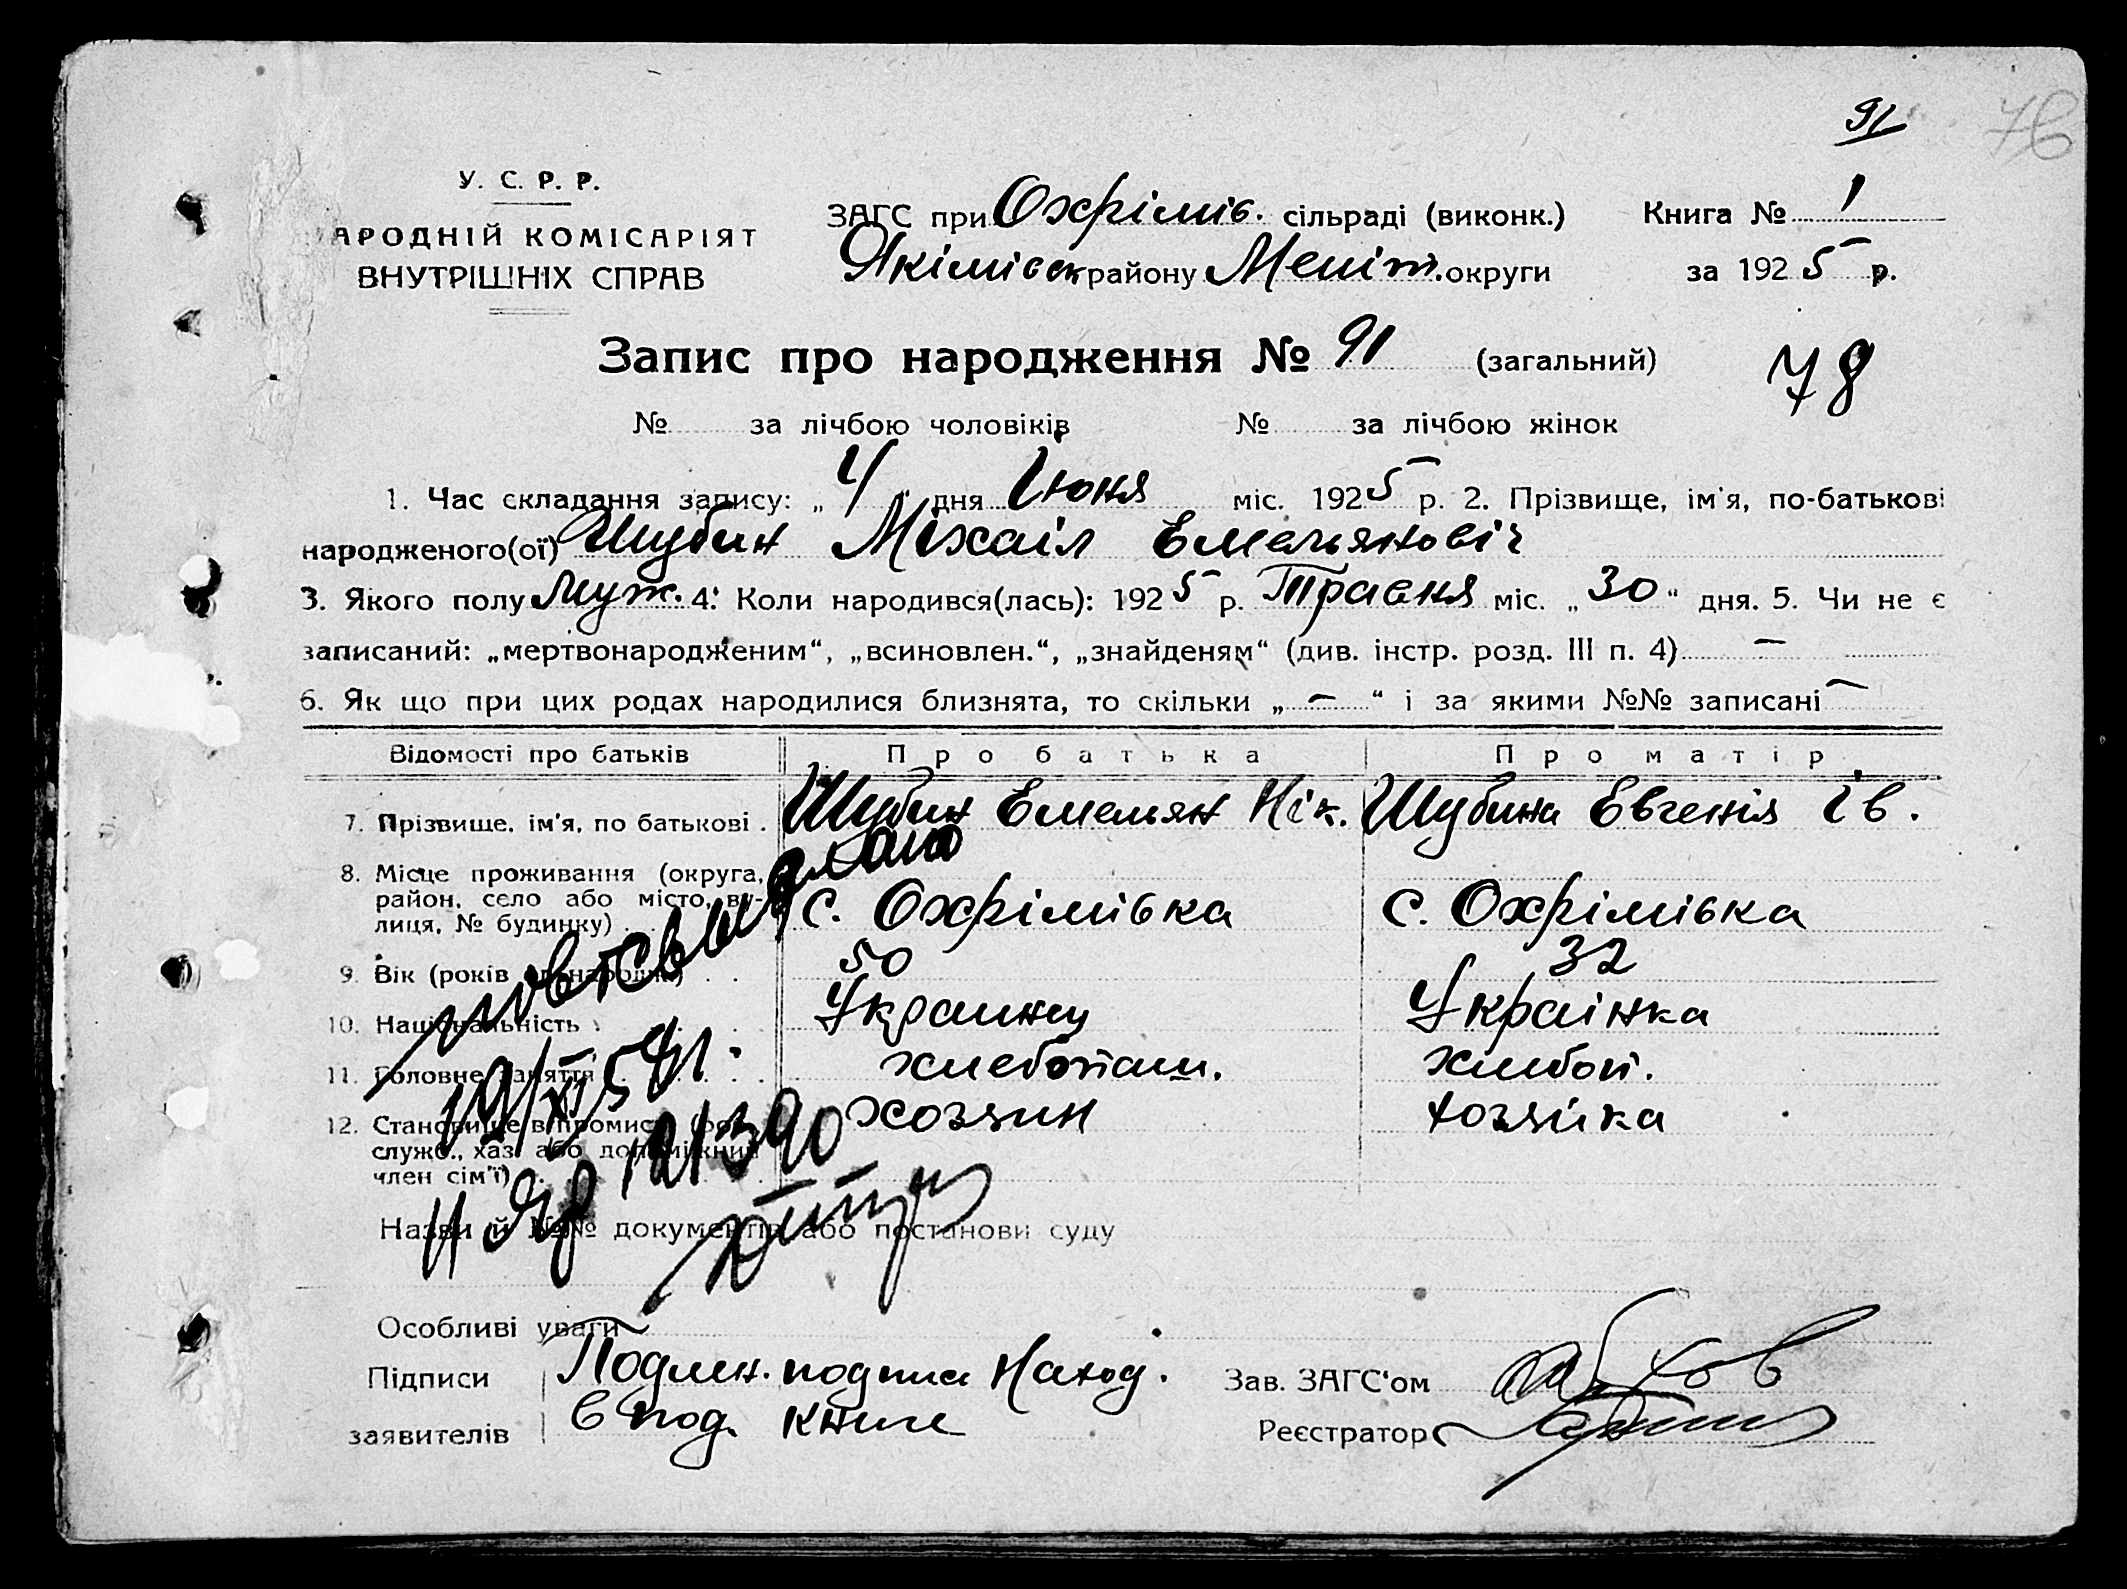 91
76
У. С. Р. Р.
АРОДНІЙ КОМІСАРІЯТ
ВНУТРІШНІХ СПРАВ
ЗАГС при Охрімів. сільраді (виконк.)
Якімівск району Меліт. округи
Книга № 1
за 1925 р.
Запис про народження № 91 (загальний)
78
№ за лічбою чоловіків № за лічбою жінок
1. Час складання запису: „4“ дня Июня міс. 1925 р. 2. Прізвище, ім'я, по-батькові
народженого(ої) Шубин Міхаіл Емельяновіч
3. Якого полу Муж. 4. Коли народився(лась): 1925 р. Травня міс. „30“ дня. 5. Чи не є
записаний: „мертвонародженим“, „всиновлен.“, „знайденям“ (див. інстр. розд. III п. 4) —
6. Як що при цих родах народилися близнята, то скільки „—“ і за якими №№ записані —
Відомості про батьків Про батька Про матір
7. Прізвище, ім'я, по батькові . Шубин Емельян Нік. Шубина Евгенія Ів.
8. Місце проживання (округа,
район, село або місто, ву-
лиця, № будинку) . . с. Охрімівка с. Охрімівка
9. Вік (років від народж.) . . 50 32
10. Національність Украинец Украінка
11. Головне заняття хлебопаш. хлибоп.
12. Становище в промислі (роб.,
служб., хаз. або допоміжний
член сім'ї) хозяин хозяйка
повт. выдано
19/XI 54 г.
II ЯР 121390
Назви й №№ документів або постанови суду
Особливі уваги
Підписи Подлин. подписи наход.
заявителів в под. книге
Зав. ЗАГС'ом
Реєстратор